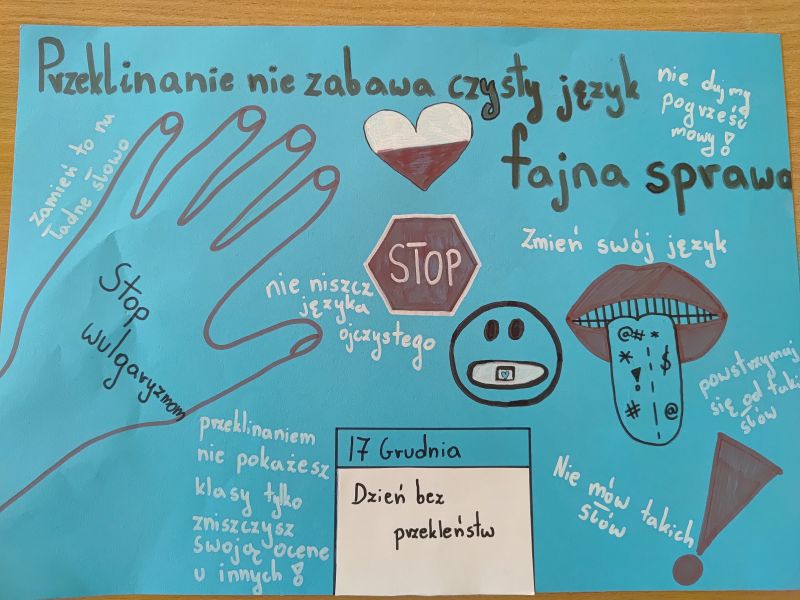 Przeklinanie nie zabawa czysty język
fajna sprawa
nie dujmy
pogrześć
mowy!
zamień to na
ładne słowo
STOP
Zmień swój język
nie niszcz
języka
ojczystego
Stop,
wulgaryzmom
@#*
* $
!
# @
powstrzymaj
się od takich
słów
przeklinaniem
nie pokażesz
klasy tylko
zniszczysz
swoją ocene
u innych!
17 Grudnia
Dzień bez
przekleństw
Nie mów takich
słów